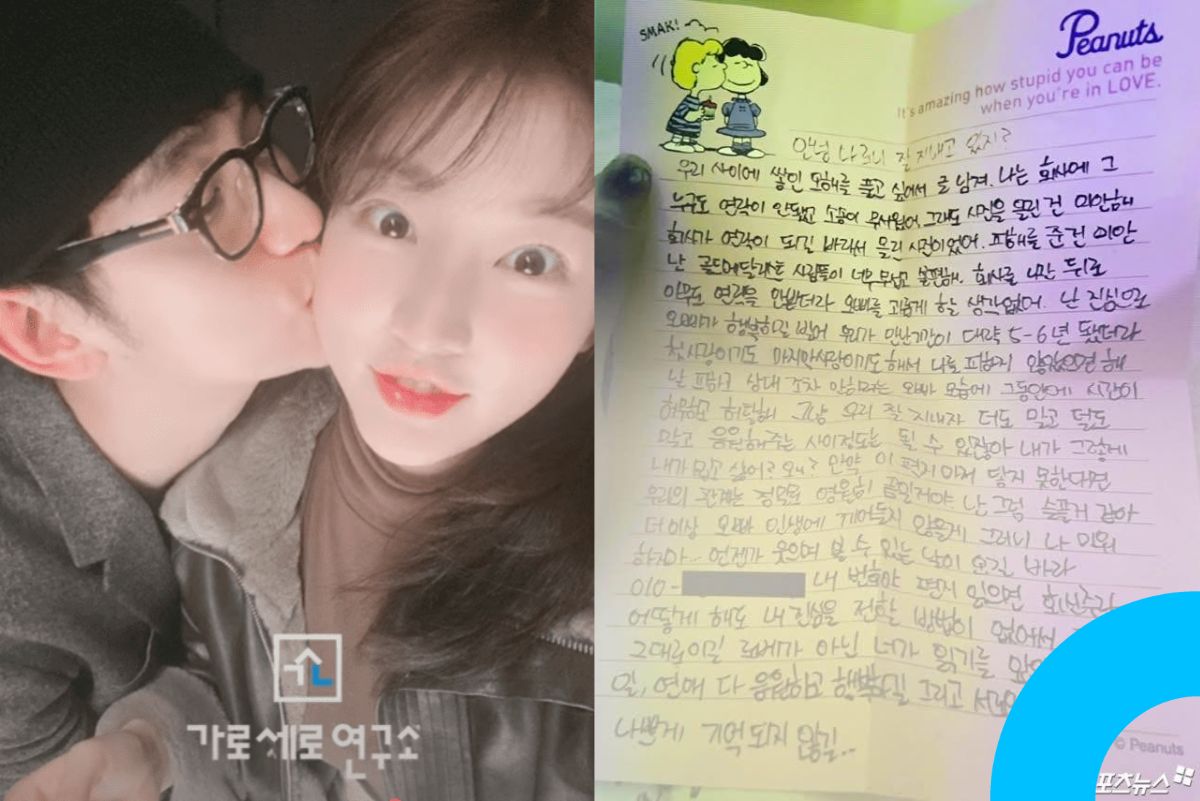 가로세로연구소
SMAK!
Peanuts
It's amazing how stupid you can be
when you're in LOVE.
안녕 나 잘 지내고 있지?
우리 사이에 쌓인 오해를 풀고 싶어서 글 남겨. 나는 회사에 그
누구도 연락이 안됐고 소송이 무서웠어. 그래도 사진을 올린 건 미안해
회사가 연락이 되길 바라서 올린 사진이었어. 피해를 준건 미안
난 골드메달리스트 사람들이 너무 무섭고 슬퍼. 회사를 나간 뒤로
아무도 연락을 안받더라 오빠를 괴롭게 할 생각없어. 난 진심으로
오빠가 행복하길 빌어 우리가 만난기간이 대략 5-6년 됐더라
첫사랑이기도 마지막사랑이기도 해서 나를 피하지 않았으면 해
날 피하고 상대 조차 안하려는 오빠 모습에 그동안에 시간이
허무하고 허탈해 그냥 우리 잘 지내자 더도 말고 덜도
말고 응원해주는 사이정도는 될 수 있잖아 내가 그렇게
내가 밉고 싫어? 왜? 만약 이 편지마저 닿지 못한다면
우리의 관계는 정말로 영원히 끝일거야 난 그럼 슬플거 같아
더 이상 오빠 인생에 끼어들지 않을게 그러니 나 미워
하지마.. 언젠가 웃으며 볼 수 있는 날이 오길 바라
010- 내 번호야 편지 읽으면 회신주라
어떻게 해도 내 진심을 전할 방법이 없어서
그대로이길 로베가 아닌 너가 읽기를
일, 연애 다 응원하고 행복하길 그리고
나쁘게 기억 되지 않길..
© Peanuts
포츠뉴스